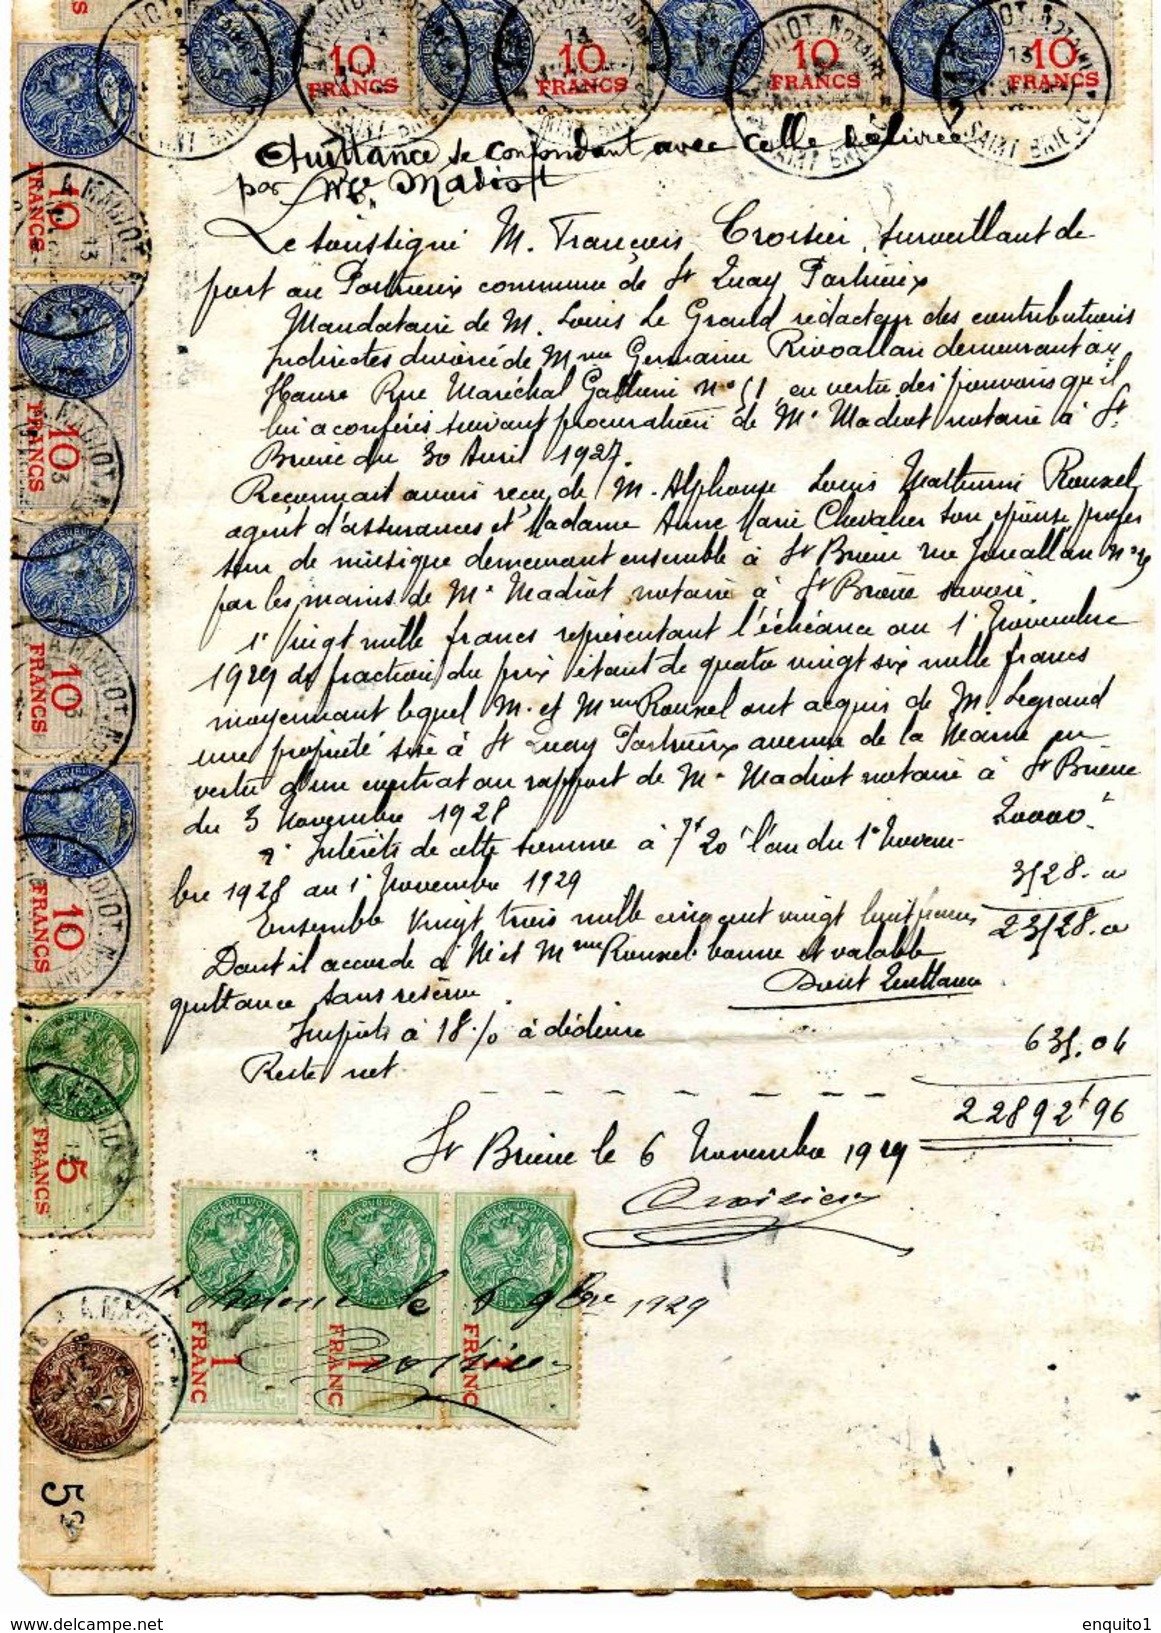 10 FRANCS 10 FRANCS 10 FRANCS 10 FRANCS
Quittance se confondant avec celle délivrée
par Me Madiot
Le soussigné M. François Croisier, surveillant de
port au Portrieux commune de St Quay Portrieux
Mandataire de M. Louis Le Grand rédacteur des contributions
Indirectes divorcé de Mme Germaine Rivoallan demeurant au
Havre Rue Maréchal Gallieni no 51 en vertu des pouvoirs qu'il
lui a conférés suivant procuration de Me Madiot notaire à St
Brieuc du 30 Avril 1927.
Reconnait avoir reçu de M. Alphonse Louis Mathurin Rouxel
agent d'assurances et Madame Anne Marie Chevalier son épouse, profes
seur de musique demeurant ensemble à St Brieuc rue Jouallan no
par les mains de Me Madiot notaire à St Brieuc savoir.
1o Vingt mille francs représentant l'échéance au 1er Novembre
1929 de fraction du prix étant de quatre vingt six mille francs
moyennant lequel M. et Mme Rouxel ont acquis de M. Legrand
une propriété sise à St Quay Portrieux avenue de la Marne en
vertu d'un contrat au rapport de Me Madiot notaire à St Brieuc
du 3 Novembre 1928 20000f
2o Intérêts de cette somme à 7f20 l'an du 1er Novem-
bre 1928 au 1er Novembre 1929 3528.00
Ensemble vingt trois mille cinq cent vingt huit francs 23528.00
Dont il accorde à M. et Mme Rouxel bonne et valable
quittance sans réserve Dont Quittance
Impôts à 18% à déduire 635.04
Reste net - - - - - - - 22892f96
St Brieuc le 6 Novembre 1929
Croisier
St Brieuc le 6 9bre 1929
Croisier
10 FRANCS
10 FRANCS
10 FRANCS
10 FRANCS
5 FRANCS
1 FRANC 1 FRANC 1 FRANC
5c
enquito1